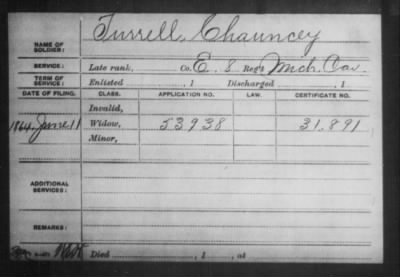 NAME OF SOLDIER: Turrell, Chauncey
SERVICE: Late rank, Co. E. 8 Reg't Mich. Cav.
TERM OF SERVICE: Enlisted , 1 Discharged , 1
DATE OF FILING. CLASS. APPLICATION NO. LAW. CERTIFICATE NO.
Invalid,
1864, June 11 Widow, 53938 31.891
Minor,
ADDITIONAL SERVICES:
REMARKS:
Died , 1 , at